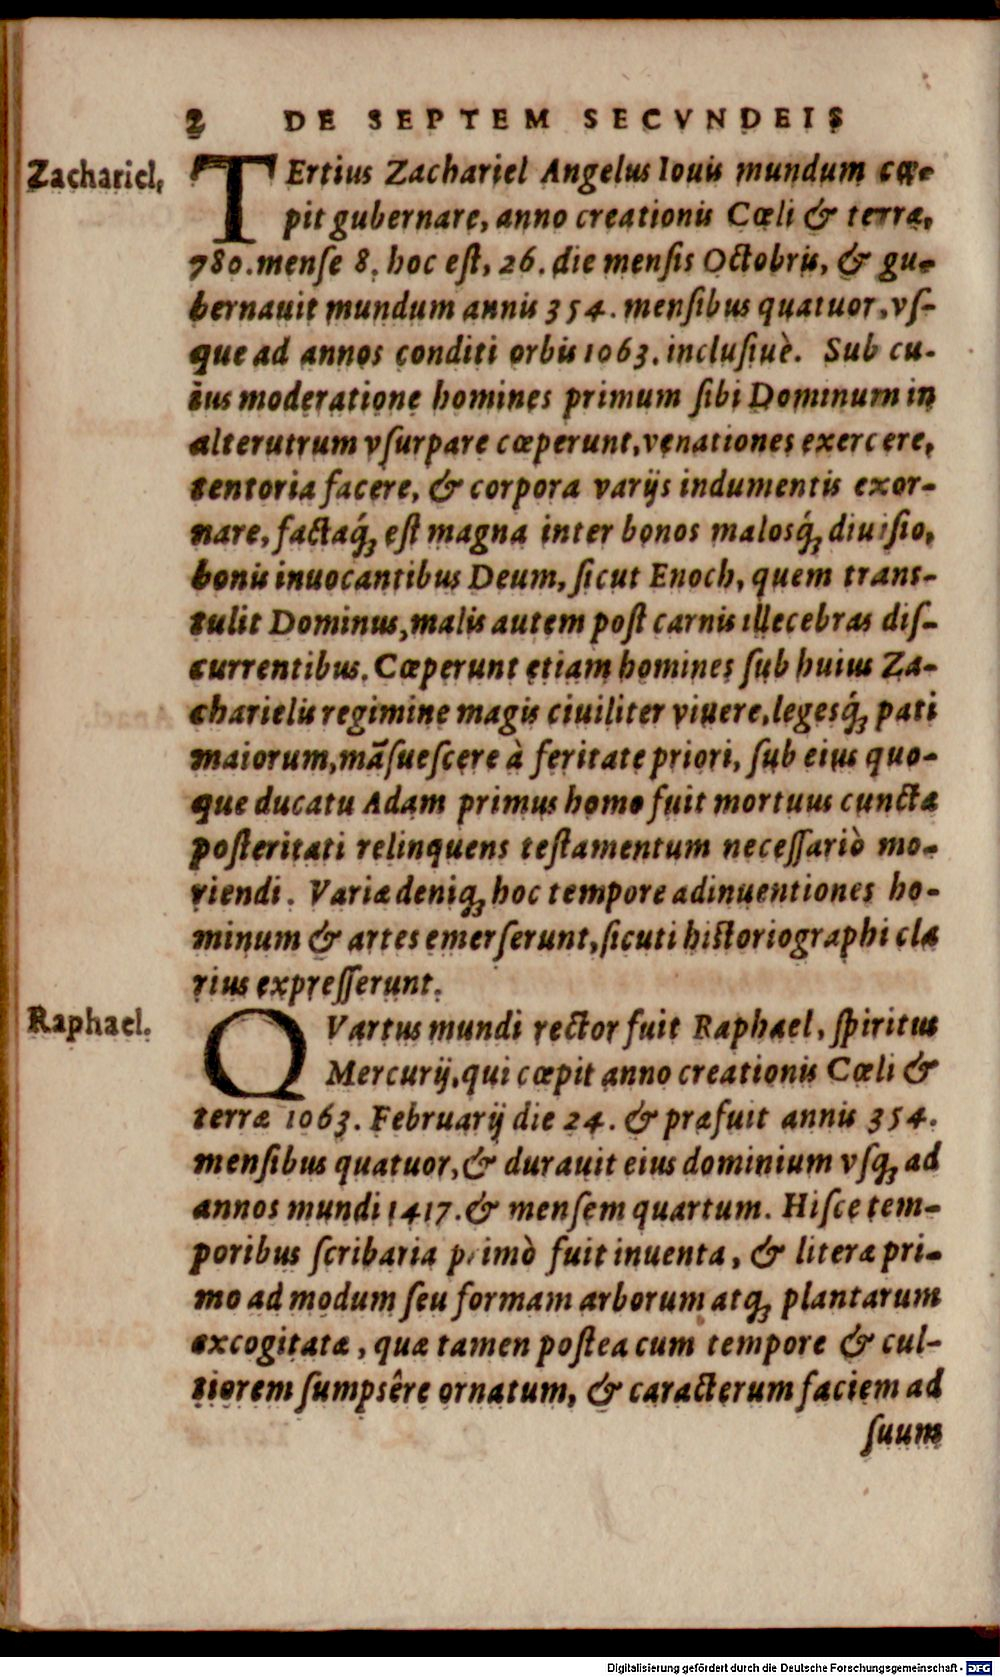 2 DE SEPTEM SECVNDEIS
Zachariel,
TErtius Zachariel Angelus Iouis mundum cœ-
pit gubernare, anno creationis Cœli & terræ,
780. mense 8. hoc est, 26. die mensis Octobris, & gu-
bernauit mundum annis 354. mensibus quatuor, vs-
que ad annos conditi orbis 1063. inclusiuè. Sub cu-
ius moderatione homines primum sibi Dominum in
alterutrum vsurpare cœperunt, venationes exercere,
tentoria facere, & corpora varijs indumentis exor-
nare, factaq́ꝫ est magna inter bonos malosq́ꝫ diuisio,
bonis inuocantibus Deum, sicut Enoch, quem trans-
tulit Dominus, malis autem post carnis illecebras dis-
currentibus. Cœperunt etiam homines sub huius Za-
charielis regimine magis ciuiliter viuere, legesq́ꝫ pati
maiorum, mãsuescere à feritate priori, sub eius quo-
que ducatu Adam primus homo fuit mortuus cuncta
posteritati relinquens testamentum necessariò mo-
riendi. Variæ deniqꝫ hoc tempore adinuentiones ho-
minum & artes emerserunt, sicuti historiographi cla
rius expresserunt.
Raphael.
QVartus mundi rector fuit Raphael, spiritus
Mercurij, qui cœpit anno creationis Cœli &
terræ 1063. Februarij die 24. & præfuit annis 354.
mensibus quatuor, & durauit eius dominium vsqꝫ ad
annos mundi 1417. & mensem quartum. Hisce tem-
poribus scribaria primò fuit inuenta, & literæ pri-
mo ad modum seu formam arborum atqꝫ plantarum
excogitatæ, quæ tamen postea cum tempore & cul-
tiorem sumpsêre ornatum, & caracterum faciem ad
suum
Digitalisierung gefördert durch die Deutsche Forschungsgemeinschaft - DFG